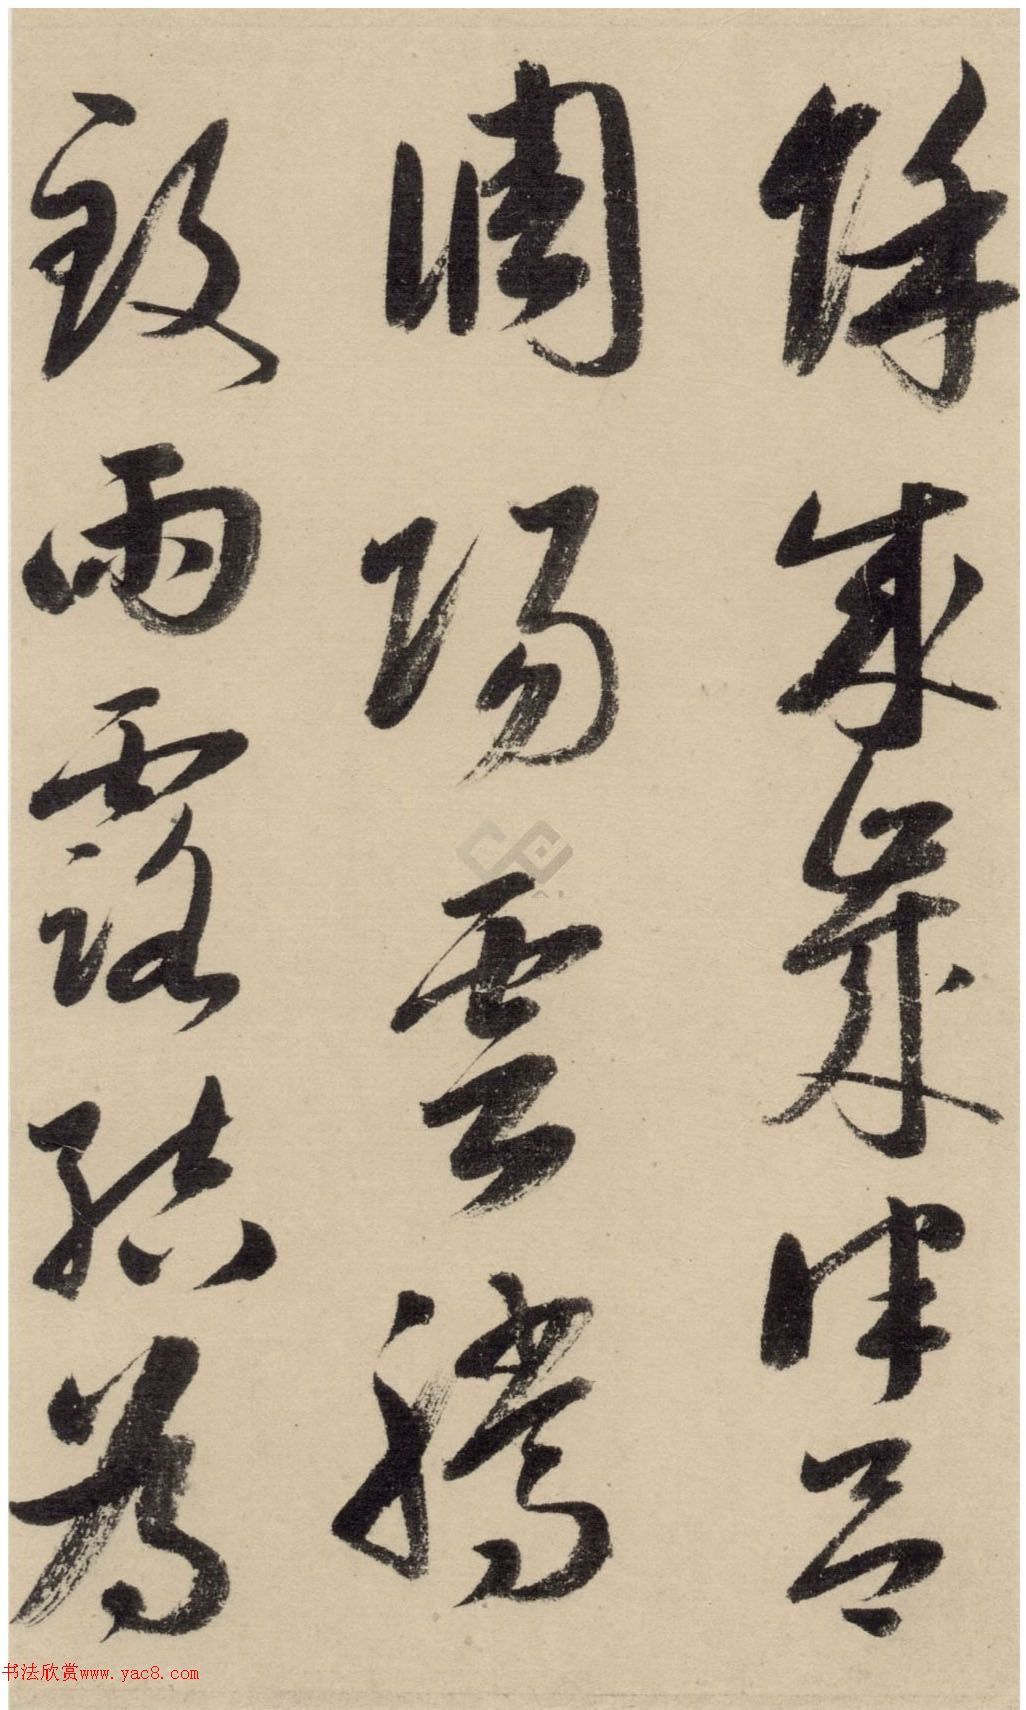 餘成歲律呂
調陽雲騰
致雨露結為
书法欣赏www.yac8.com